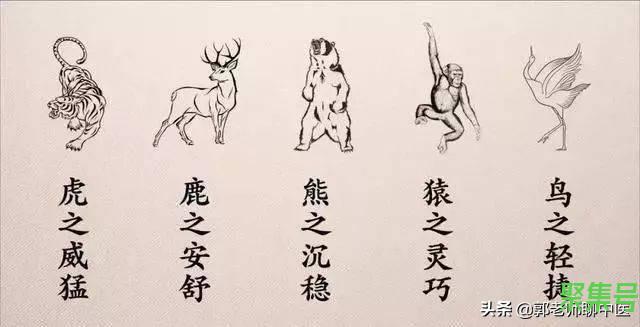 虎之威猛
鹿之安舒
熊之沉稳
猿之灵巧
鸟之轻捷
聚集号
头条 @郭老师聊中医